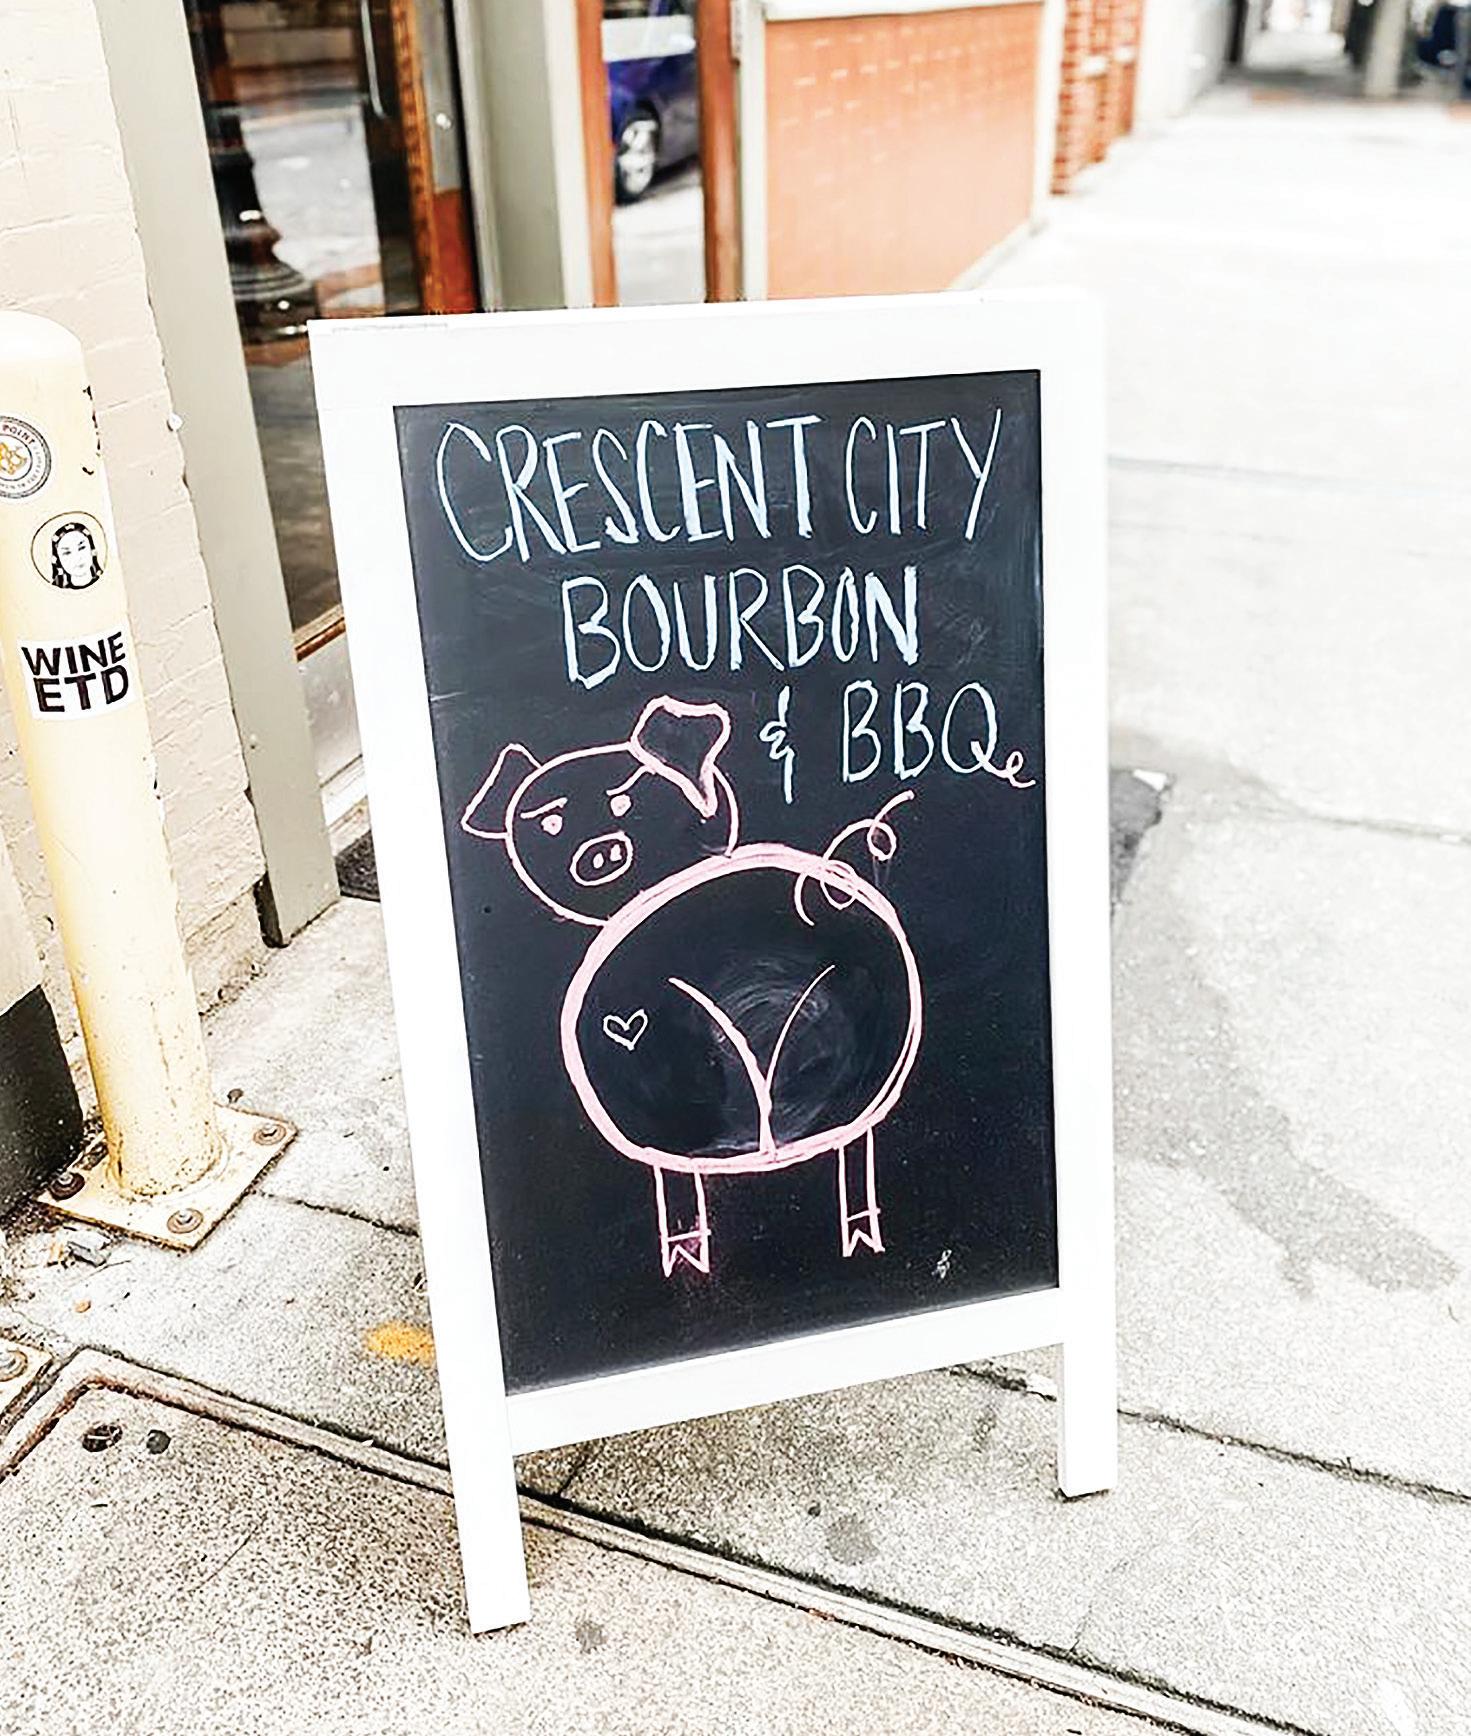 CRESCENT CITY
BOURBON
& BBQ
POINT
WINE
ETD